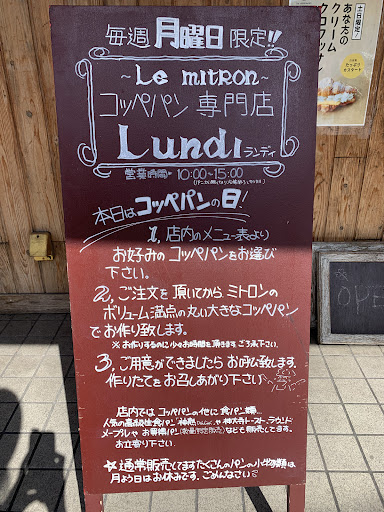 毎週 月曜日 限定!!
~ Le mitron ~
コッペパン 専門店
Lundi ランディ
営業時間 10:00~15:00
本日はコッペパンの日!
1, 店内のメニュー表より
お好みの コッペパンをお選び
下さい。
2, ご注文を 頂いてから ミトロンの
ボリューム満点の 丸い大きなコッペパン
でお作り致します。
※お作りするのに少々お時間を頂きます。ご了承下さい。
3, ご用意ができましたら お呼び致します。
作りたてを お召しあがり下さい。
店内では コッペパンの他に 食パン類...
人気の高級生食パン や 神大寺トースト、ラウンド
メープルや お等
なども販売してます。
お立寄り下さい。
☆通常販売してますたくさんのパンの小物類は
月よう日はお休みです。ごめんなさい
土日限定!
あなたの
クリーム
クロワッサ
OPE